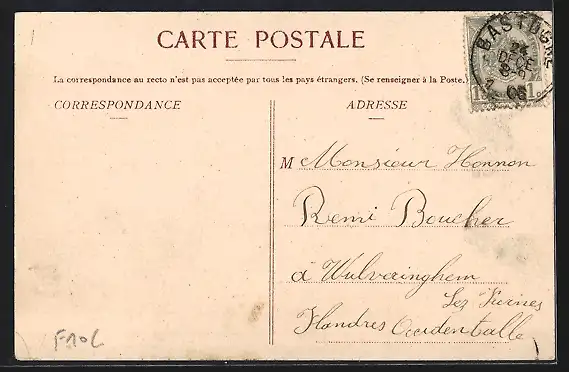 CARTE POSTALE
La correspondance au recto n'est pas acceptée par tous les pays étrangers. (Se renseigner à la Poste.)
CORRESPONDANCE
ADRESSE
BASTOGNE
24
DECE
05
1c 1c
M Monsieur Honnon
Remi Boucher
à Wulveringhem
Lez Furnes
Flandres Occidentalle
F10c